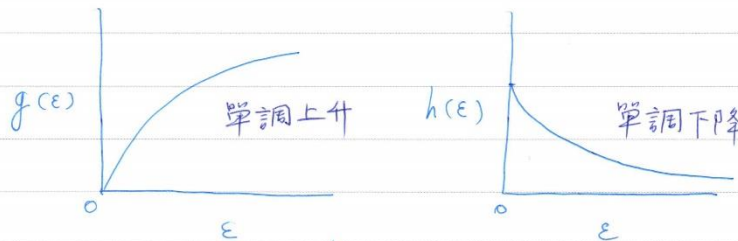 g(ε)
單調上升
0
ε
h(ε)
單調下降
0
ε